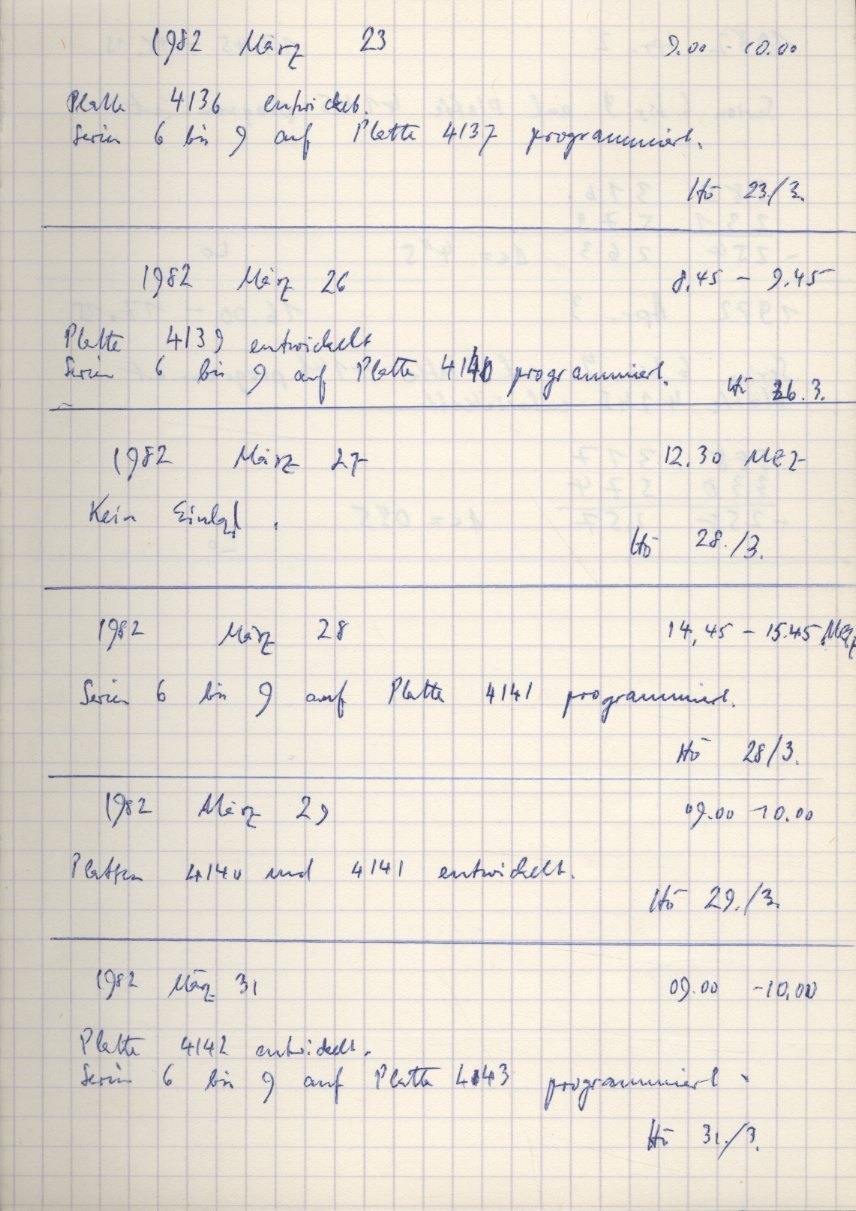 1982 März 23 9.00 - 10.00
Platte 4136 entwickelt.
Serien 6 bis 9 auf Platte 4137 programmiert.
Hö 23./3.
1982 März 26 8.45 - 9.45
Platte 4139 entwickelt
Serien 6 bis 9 auf Platte 4140 programmiert.
Hö 26.3.
1982 März 27 12.30 MEZ
Kein
Hö 28./3.
1982 März 28 14,45 - 15.45 MEZ
Serien 6 bis 9 auf Platte 4141 programmiert.
Hö 28/3.
1982 März 29 09.00 - 10.00
Platten 4140 und 4141 entwickelt.
Hö 29./3.
1982 März 31 09.00 - 10.00
Platte 4142 entwickelt.
Serien 6 bis 9 auf Platte 4143 programmiert.
Hö 31./3.